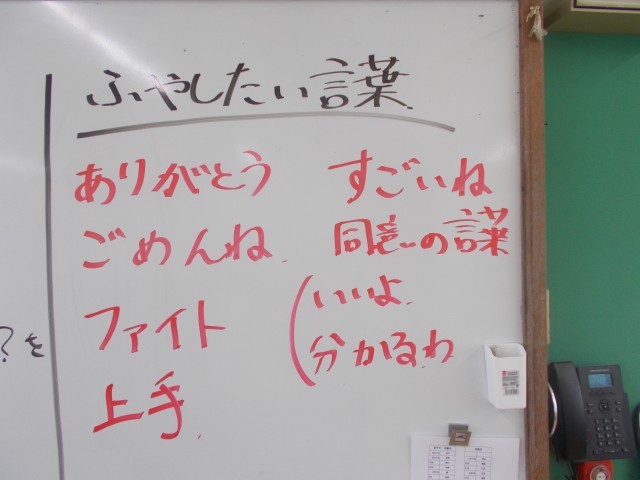 ふやしたい言葉
ありがとう
ごめんね
ファイト
上手
すごいね
同意の言葉
(いいよ
分かるわ
?を